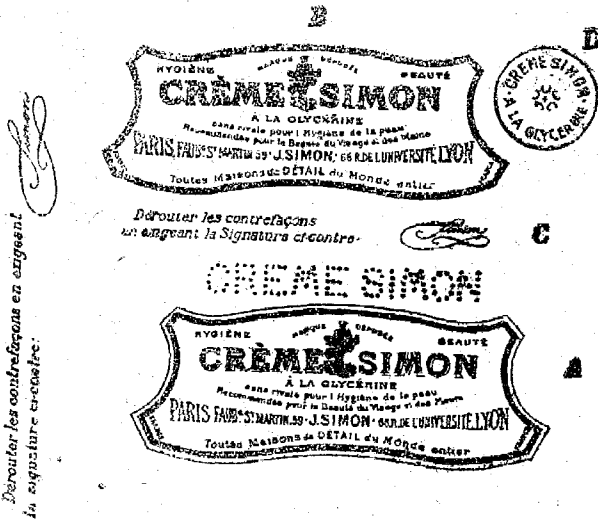 B
D
HYGIÈNE
MARQUE DÉPOSÉE
BEAUTÉ
CRÈME SIMON
À LA GLYCÉRINE
sans rivale pour l'Hygiène de la peau
Recommandée pour la Beauté du Visage et des Mains
PARIS, FAUBG ST MARTIN 59 · J. SIMON · 66 R. DE L'UNIVERSITÉ, LYON
Toutes Maisons de DÉTAIL du Monde entier
CREME SIMON
A LA GLYCERINE
Dérouter les contrefaçons
en exigeant la Signature ci-contre·
Simon
C
CREME SIMON
HYGIÈNE
MARQUE DÉPOSÉE
BEAUTÉ
CRÈME SIMON
À LA GLYCÉRINE
sans rivale pour l'Hygiène de la peau
Recommandée pour la Beauté du Visage et des Mains
PARIS, FAUBG ST MARTIN, 59 · J. SIMON · 66 R. DE L'UNIVERSITÉ, LYON
Toutes Maisons de DÉTAIL du Monde entier
A
Dérouter les contrefaçons en exigeant
la signature ci-contre:
Simon